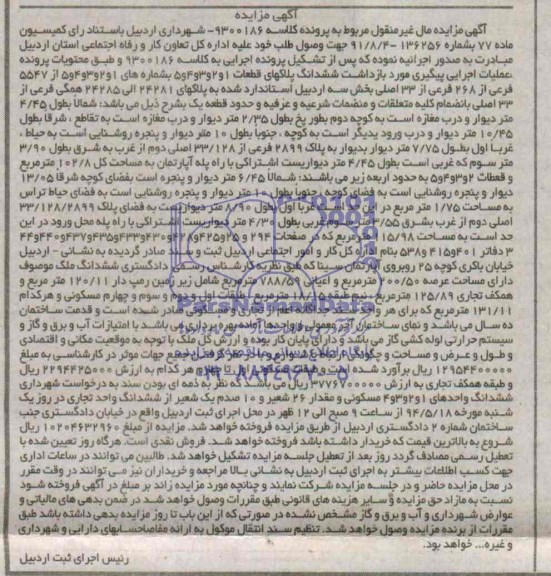 آگهی مزایده
آگهی مزایده مال غیر منقول مربوط به پرونده کلاسه ۹۳۰۰۱۸۶- شهرداری اردبیل باستناد رای کمیسیون
ماده ۷۷ بشماره ۱۳۶۲۵۶ -۹۱/۸/۴ جهت وصول طلب خود علیه اداره کل تعاون کار و رفاه اجتماعی استان اردبیل
مبادرت به صدور اجرائیه نموده که پس از تشکیل پرونده اجرایی به کلاسه ۹۳۰۰۱۸۶ و طبق محتویات پرونده
عملیات اجرایی پیگیری مورد بازداشت ششدانگ پلاکهای قطعات ۱و۲و۳و۴و۵ بشماره های ۱و۲و۳و۴و۵ از ۵۵۴۷
فرعی از ۲۶۸ فرعی از ۳۳ اصلی بخش سه اردبیل استاندارد شده به پلاکهای ۲۴۲۸۱ الی ۲۴۲۸۵ همگی فرعی از
۳۳ اصلی بانضمام کلیه متعلقات و منضمات شرعیه و عرفیه و حدود قطعه یک بشرح ذیل می باشد: شمالا بطول ۴/۴۵
متر دیوار و درب مغازه است به کوچه دوم بطور پخ بطول ۲/۳۵ متر دیوار و درب مغازه است به تقاطع ، شرقا بطول
۱۰/۴۵ متر دیوار و درب ورود یدیگر است به کوچه ، جنوبا بطول ۱۰ متر دیوار و پنجره روشنایی است به حیاط ،
غربا اول بطول ۷/۷۵ متر دیوار بدیوار به پلاک ۲۸۹۹ فرعی از ۳۳/۱۲۸ اصلی دوم از غرب به شرق بطول ۳/۹۰
متر سوم که غربی است بطول ۴/۴۵ متر دیواریست اشتراکی با راه پله آپارتمان به مساحت کل ۱۰۲/۸ مترمربع
و قطعات ۲و۳و۴و۵ به حدود اربعه زیر می باشند: شمالا ۶/۴۵ متر دیوار و پنجره است بفضای کوچه شرقا ۱۳/۰۵
دیوار و پنجره روشنایی است به فضای کوچه ، جنوبا بطول ۱۰ متر دیوار و پنجره روشنایی است به فضای حیاط تراس
به مساحت ۱/۷۵ متر مربع در این حد است غربا اول بطول ۸/۹۰ متر دیوار است به فضای پلاک ۳۳/۱۲۸/۲۸۹۹
اصلی دوم از غرب بشرق ۳/۵۵ متر سوم غربی بطول ۴/۳۰ متر دیواریست اشتراکی با راه پله محل ورود در این
حد است به مساحت ۱۱۵/۹۸ مترمربع که در صفحات ۲۹۴ و ۲۵و۴۲۵و۴۲۸و۴۳۰و۴۳۳و۴۳۵و۴۳۷و۴۴۰و۴۴
۳ دفاتر ۴۰۱و۴۱۵ و۵۳۸ بنام اداره کل کار و امور اجتماعی اردبیل ثبت و سند صادر گردیده به نشانی - اردبیل
خیابان باکری کوچه ۲۵ روبروی آپارتمان سینا که طبق نظریه کارشناس رسمی دادگستری ششدانگ ملک موصوف
دارای مساحت عرصه ۲۰۰/۵۰ مترمربع و اعیانی ۷۸۸/۵۹ مترمربع شامل زیر زمین رمپ دار ۱۲۰/۱۱ متر مربع و
همکف تجاری ۱۲۵/۸۹ مترمربع، نیم طبقه ۱۸/۰۰ مترمربع، طبقات اول و دوم و سوم و چهارم مسکونی و هرکدام
۱۳۱/۱۱ مترمربع که برای هر واحد سند مالکیت اعم از تجاری و مسکونی صادر شده است و قدمت ساختمان
ده سال می باشد و نمای ساختمان آجر معمولی و واحدها آماده بهره برداری می باشد با امتیازات آب و برق و گاز و
سیستم حرارتی لوله کشی گاز می باشد و دارای پایان کار بوده و ارزش کل ملک با توجه به موقعیت مکانی و اقتصادی
و طول و عرض و مساحت و چگونگی دسترسی و با در نظر گرفتن جمیع جهات موثر در کارشناسی به مبلغ
۱۲۹۵۴۴۰۰۰۰۰ ریال برآورد شده است و طبقات مسکونی اول تا چهارم هر کدام به ارزش ۲۲۹۴۴۲۵۰۰۰ ریال
و طبقه همکف تجاری به ارزش ۳۷۷۶۷۰۰۰۰۰ ریال می باشد که نظر به ذمه ای بودن سند به درخواست شهرداری
ششدانگ واحدهای ۱و۲و۳و۴ مسکونی و مقدار ۲۶ شعیر و ۱۰ صدم یک شعیر از ششدانگ واحد تجاری در روز یک
شنبه مورخه ۹۴/۵/۱۸ از ساعت ۹ صبح الی ۱۲ ظهر در محل اجرای ثبت اردبیل واقع در خیابان دادگستری جنب
ساختمان شماره ۲ دادگستری اردبیل از طریق مزایده فروخته خواهد شد. مزایده از مبلغ ۱۰۲۰۴۶۳۲۹۶۰ ریال
شروع به بالاترین قیمت که خریدار داشته باشد فروخته خواهد شد. فروش نقدی است. هرگاه روز تعیین شده با
تعطیل رسمی مصادف گردد روز بعد از تعطیل جلسه مزایده تشکیل خواهد شد. طالبین می توانند در ساعات اداری
جهت کسب اطلاعات بیشتر به اجرای ثبت اردبیل به نشانی بالا مراجعه و خریداران نیز می توانند در وقت مقرر
در محل مزایده حاضر و در جلسه مزایده شرکت نمایند و چنانچه مورد مزایده زائد بر مبلغ در آگهی فروخته شود
نسبت به مازاد حق مزایده و سایر هزینه های قانونی طبق مقررات وصول خواهد شد در ضمن بدهی های مالیاتی و
عوارض شهرداری و آب و برق و گاز مشخص نشده در صورتی که از این باب تا روز مزایده بدهی داشته باشد طبق
مقررات از برنده مزایده وصول خواهد شد. تنظیم سند انتقال موکول به ارائه مفاصاحسابهای دارایی و شهرداری
و غیره... خواهد بود.
رئیس اجرای ثبت اردبیل